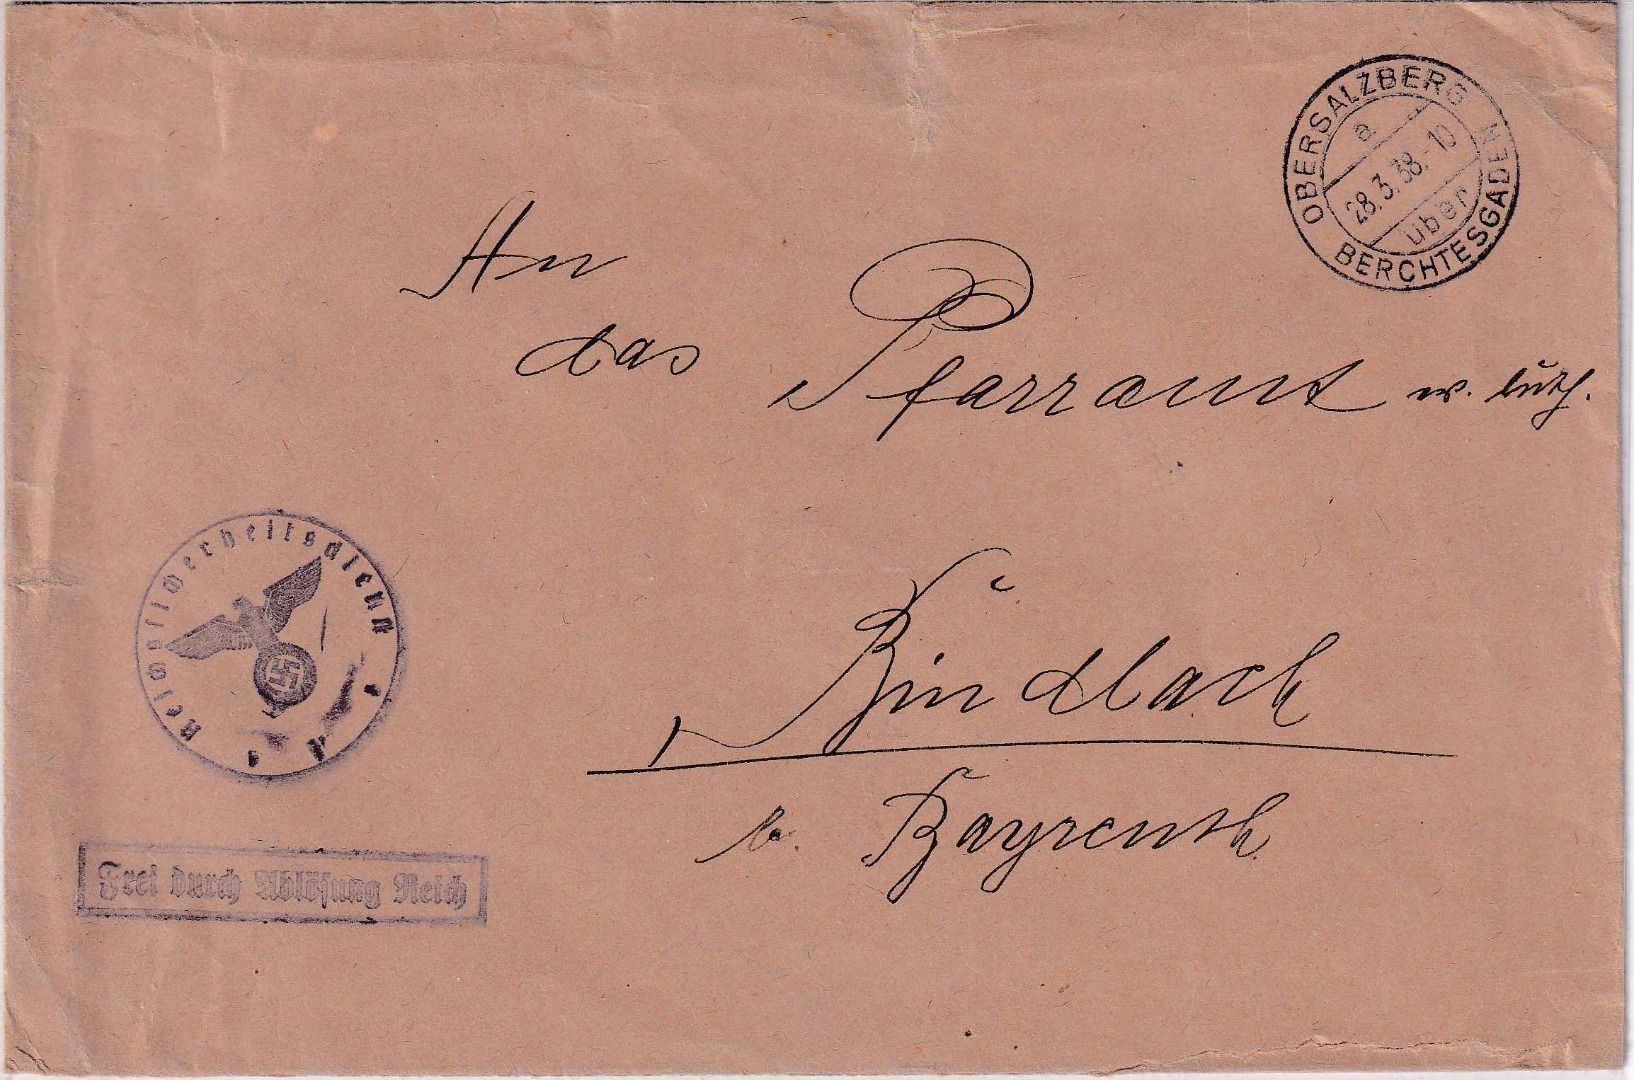 OBERSALZBERG
a
28.3.38.-10
über
BERCHTESGADEN
An
das Pfarramt ev. luth.
Bindlach
b. Bayreuth
Reichsarbeitsdienst
Frei durch Ablösung Reich